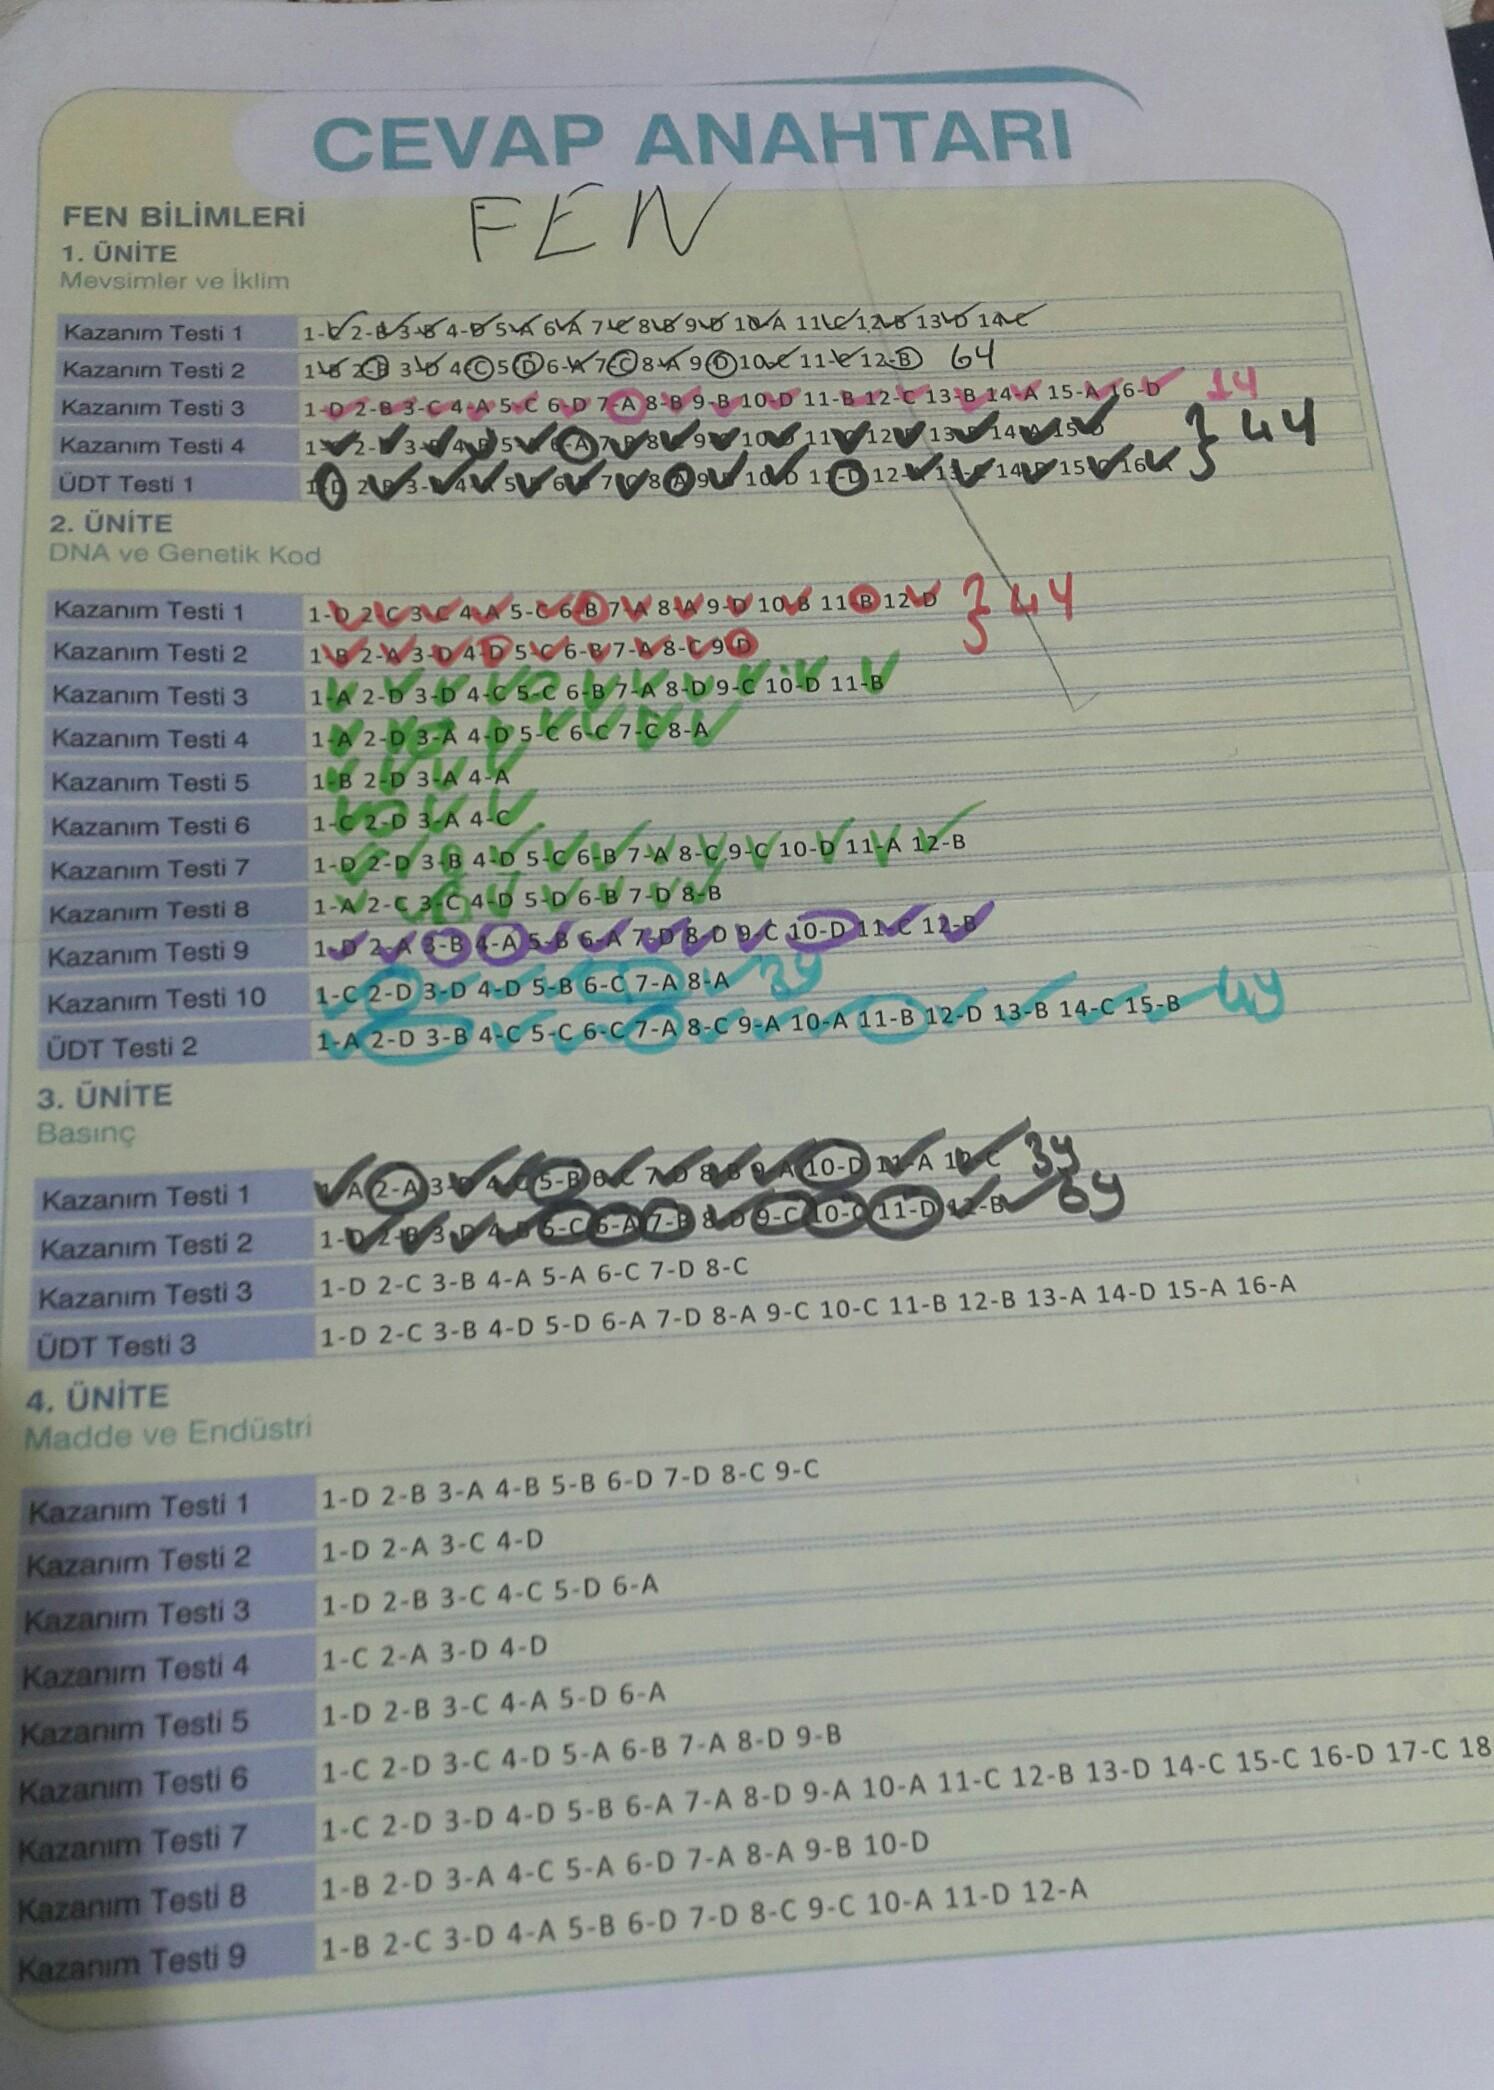 CEVAP ANAHTARI
FEN
FEN BİLİMLERİ
1. ÜNİTE
Mevsimler ve İklim
Kazanım Testi 1 1-C 2-B 3-B 4-D 5-A 6-A 7-C 8-B 9-D 10-A 11-C 12-B 13-D 14-C
Kazanım Testi 2 1-B 2-B 3-D 4-C 5-D 6-A 7-C 8-A 9-D 10-C 11-C 12-B 6y
Kazanım Testi 3 1-D 2-B 3-C 4-A 5-C 6-D 7-A 8-B 9-B 10-D 11-B 12-C 13-B 14-A 15-A 16-D 1y
Kazanım Testi 4 6-A 4y
ÜDT Testi 1 11-D
2. ÜNİTE
DNA ve Genetik Kod
Kazanım Testi 1 1-D 2-C 3-C 4-A 5-C 6-B 7-A 8-A 9-D 10-B 11-B 12-D 4y
Kazanım Testi 2 1-B 2-A 3-D 4-D 5-C 6-B 7-A 8-C 9-D
Kazanım Testi 3 1-A 2-D 3-D 4-C 5-C 6-B 7-A 8-D 9-C 10-D 11-B
Kazanım Testi 4 1-A 2-D 3-A 4-D 5-C 6-C 7-C 8-A
Kazanım Testi 5 1-B 2-D 3-A 4-A
Kazanım Testi 6 1-C 2-D 3-A 4-C
Kazanım Testi 7 1-D 2-D 3-B 4-D 5-C 6-B 7-A 8-C 9-C 10-D 11-A 12-B
Kazanım Testi 8 1-A 2-C 3-C 4-D 5-D 6-B 7-D 8-B
Kazanım Testi 9 1-D 2-A 3-B 4-A 5-B 6-A 7-D 8-D 9-C 10-D 11-C 12-B
Kazanım Testi 10 1-C 2-D 3-D 4-D 5-B 6-C 7-A 8-A 3y
ÜDT Testi 2 1-A 2-D 3-B 4-C 5-C 6-C 7-A 8-C 9-A 10-A 11-B 12-D 13-B 14-C 15-B 4y
3. ÜNİTE
Basınç
Kazanım Testi 1 1-A 2-A 5-B 6-C 7-D 8-B 9-A 10-D 11-A 12-C 3y
Kazanım Testi 2 1-D 2-B 3-D 4-B 5-C 6-A 7-B 8-D 9-C 10-C 11-D 12-B 6y
Kazanım Testi 3 1-D 2-C 3-B 4-A 5-A 6-C 7-D 8-C
ÜDT Testi 3 1-D 2-C 3-B 4-D 5-D 6-A 7-D 8-A 9-C 10-C 11-B 12-B 13-A 14-D 15-A 16-A
4. ÜNİTE
Madde ve Endüstri
Kazanım Testi 1 1-D 2-B 3-A 4-B 5-B 6-D 7-D 8-C 9-C
Kazanım Testi 2 1-D 2-A 3-C 4-D
Kazanım Testi 3 1-D 2-B 3-C 4-C 5-D 6-A
Kazanım Testi 4 1-C 2-A 3-D 4-D
Kazanım Testi 5 1-D 2-B 3-C 4-A 5-D 6-A
Kazanım Testi 6 1-C 2-D 3-C 4-D 5-A 6-B 7-A 8-D 9-B
Kazanım Testi 7 1-C 2-D 3-D 4-D 5-B 6-A 7-A 8-D 9-A 10-A 11-C 12-B 13-D 14-C 15-C 16-D 17-C 18
Kazanım Testi 8 1-B 2-D 3-A 4-C 5-A 6-D 7-A 8-A 9-B 10-D
Kazanım Testi 9 1-B 2-C 3-D 4-A 5-B 6-D 7-D 8-C 9-C 10-A 11-D 12-A